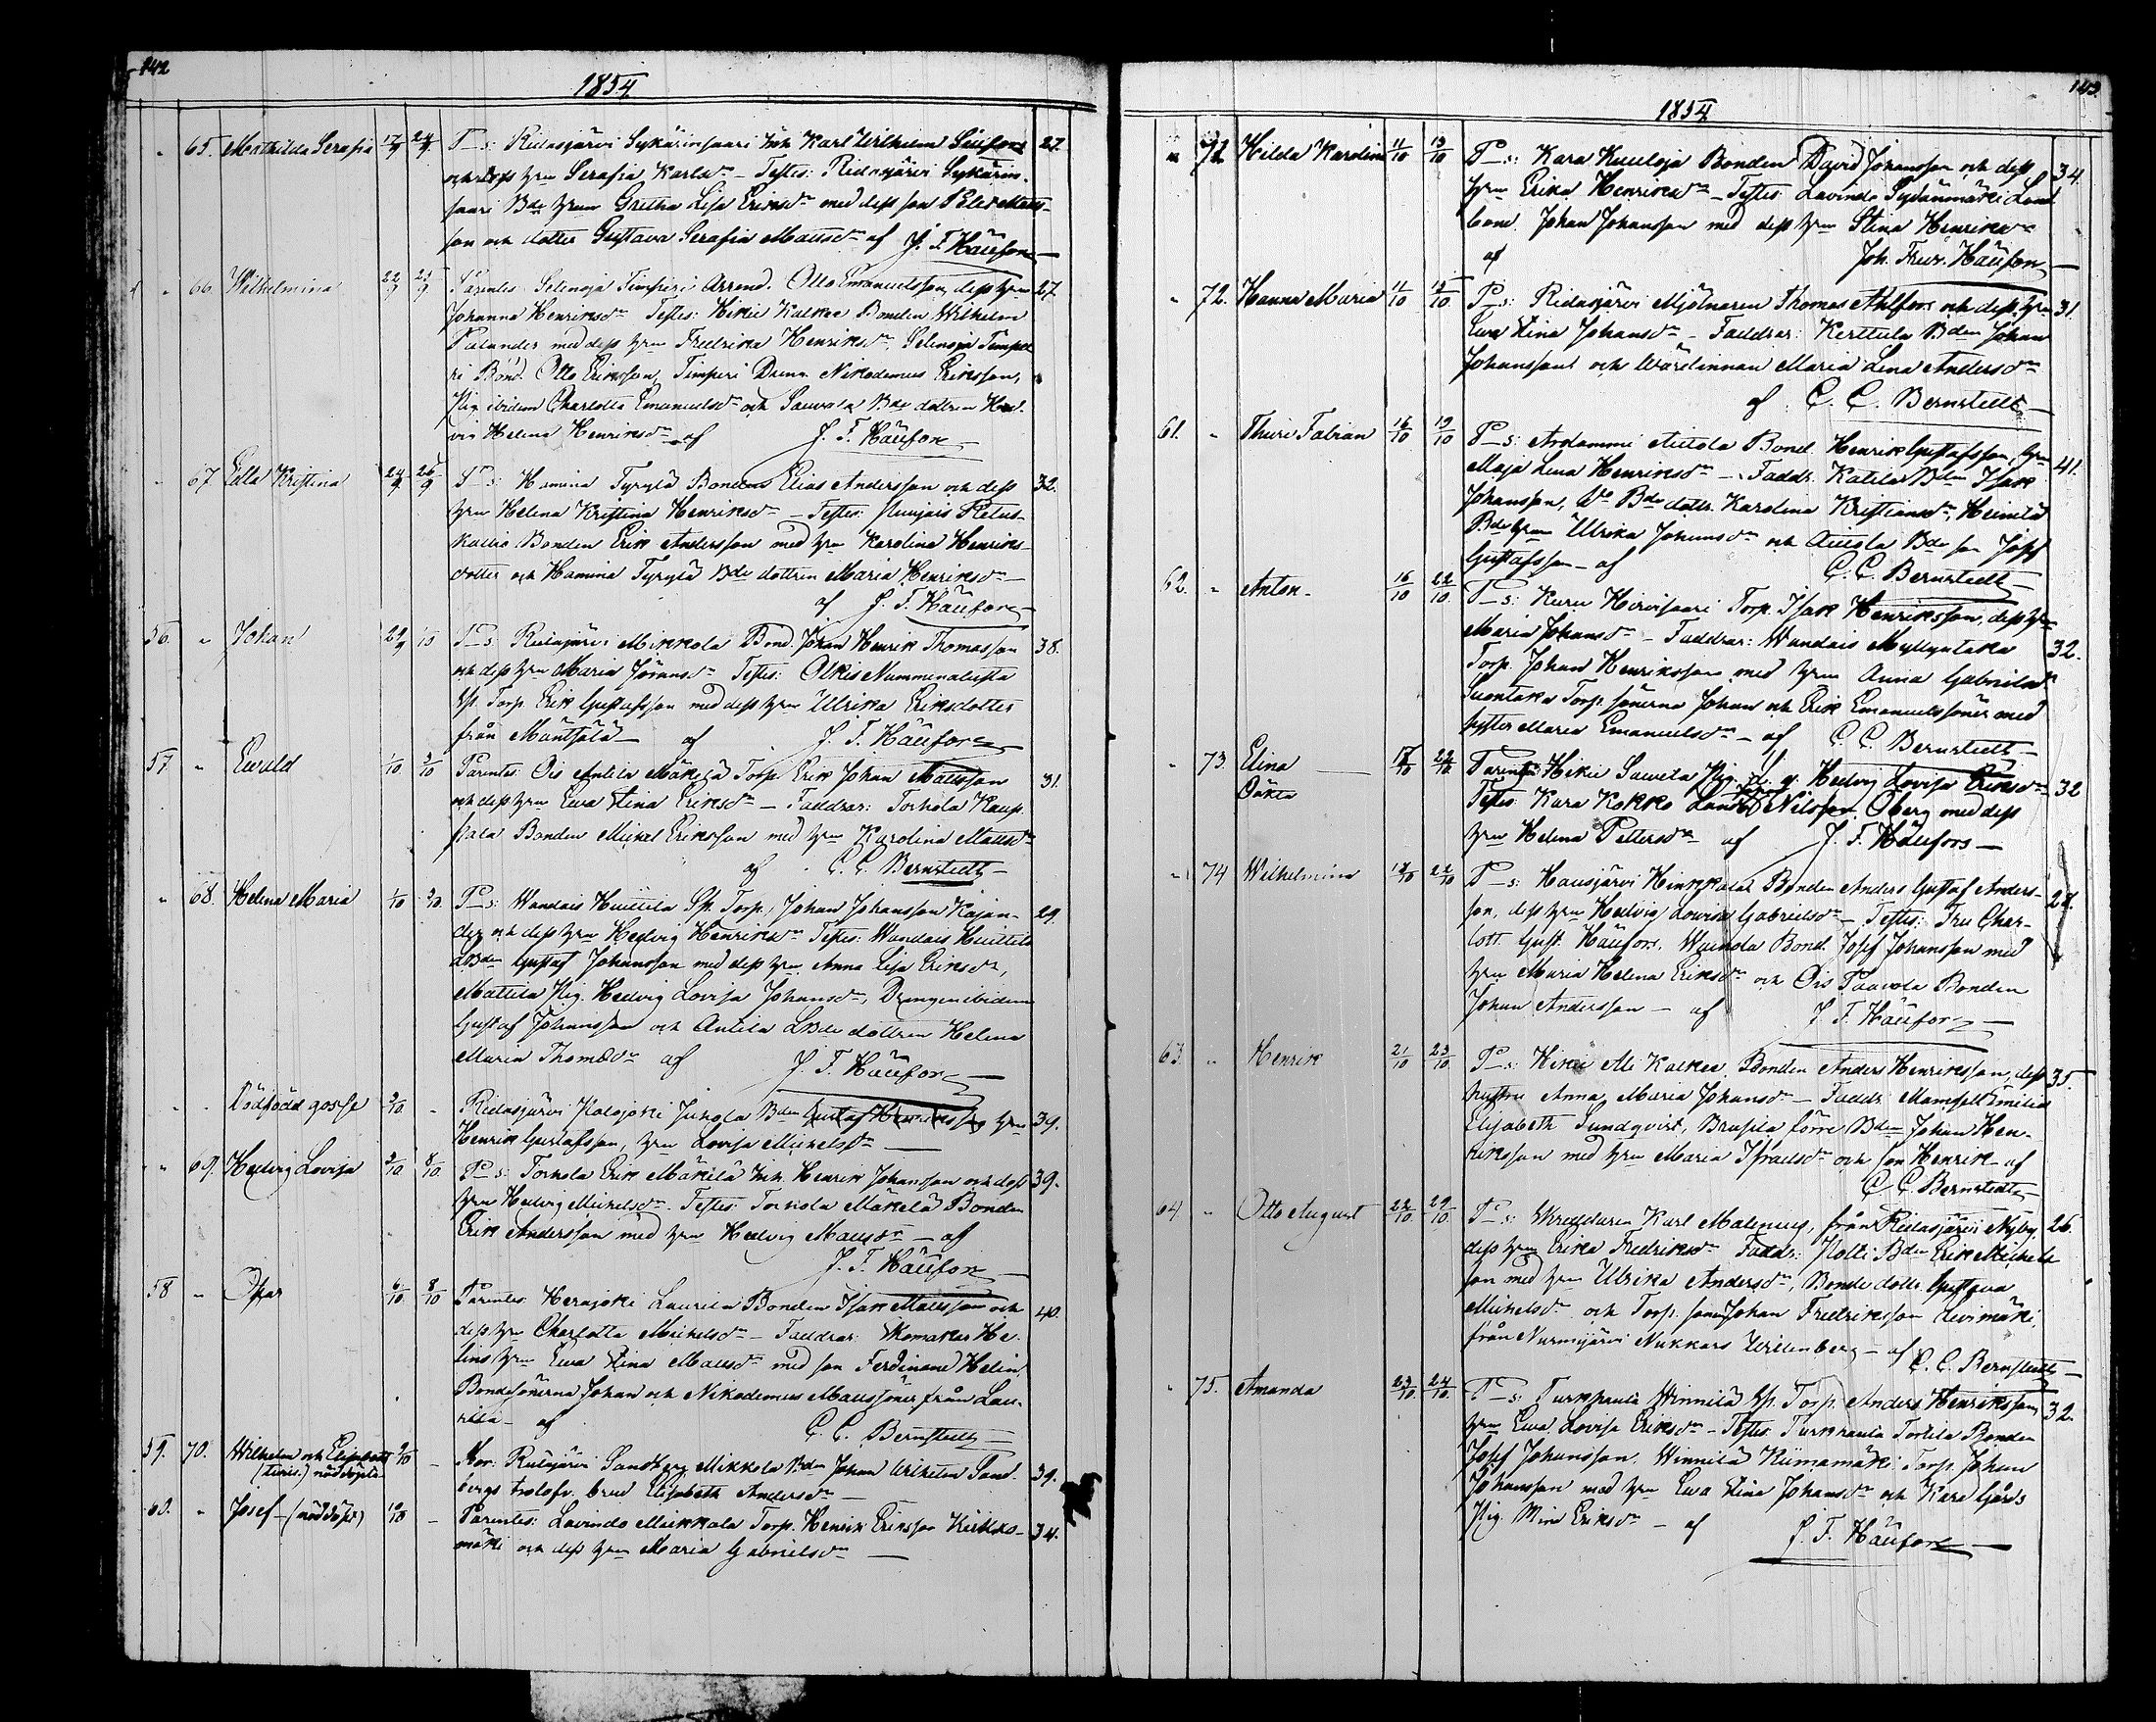 142
1854
65. Mathilda Serafia 17/9 24/9 P_s: Ridasjärvi Sykärinsaari Inh. Karl Wilhelm Säufors 27.
och dess hru Serafia Karlsdr – Testes: Ridasjärvi Sykärin-
saari Bde hrun Gretha Lisa Eriksdr med dess son Matts-
son och dotter Gustava Serafia Mattsdr af J. F. Häufors
66. Wilhelmina 22/9 Parentes Selinoja Timperi Arrend. Otto Emanuelsson, dess hru 27.
Johanna Henriksdr Testes: Hikiä Kalkee Bonden Wilhelm
Palander med dess hru Fredrika Henriksdr, Selinoja Timpe-
ri Bond. Otto Eriksson, Timperi Dreng Nikodemus Eriksson,
Pig. ibidem Charlotta Emanuelsdr och Sauvala Bde dottren Hed-
vig Helena Henriksdr af J. F. Häufors
67 Edla Kristina 24/9 26/9 P_s: Hamina Tyrylä Bonden Elias Andersson och dess 32.
hru Helena Kristina Henriksdr – Testes: Nuujais Retus-
kallio Bonden Erik Andersson med hru Karolina Henriks-
dotter och Hamina Tyrylä Bde dottren Maria Henriksdr
af J. F. Häufors
56. " Johan 29/9 P_s: Ridasjärvi Mikkola Bond. Johan Henrik Thomasson 38.
och dess hru Maria Jöransdr Testes: Olkis Nummenalusta
Sp. Torp. Erik Gustafsson med dess hru Ulrika Eriksdotter
från Mäntsälä af J. F. Häufors
57 " Evald 1/10 3/10 Parentes: Ois Antila Mäkelä Torp. Erik Johan Mattsson 31.
och dess hru Ewa Stina Eriksdr – Faddrar: Torhola Kaup-
pala Bonden Mickel Eriksson med hru Karolina Mattsdr
af C. C. Bernstedt
68. Helena Maria 1/10 P_s: Wandais Huittila Sp. Torp. Johan Johansson Kajan- 29.
der och dess hru Hedvig Henriksdr Testes: Wandais Huittila
LBdn Gustaf Johansson med dess hru Anna Lisa Eriksdr,
Mattila Pig. Hedvig Lovisa Johansdr, Drängen ibidem
Gustaf Johansson och Antila LBde dottren Helena
Maria Thomædr af J. F. Häufors
Dödfödd gosse 3/10 Ridasjärvi Palojoki Jukola Bdn Gustaf Henriksson hru 39.
Henrik Gustafsson, hru Lovisa Michelsdr
69. Hedvig Lovisa 3/10 8/10 P_s: Torhola Erik Mäkilä Inh. Henrik Johansson och dess 39.
hru Hedvig Michelsdr. Testes: Torhola Mäkelä Bonden
Erik Andersson med hru Hedvig Mattsdr – af
J. F. Häufors
58 " Oskar 6/10 8/10 Parentes: Herajoki Laurila Bonden Isak Mattsson och 40.
dess hru Charlotta Michelsdr – Faddrar: Skomakar He-
lins hru Ewa Stina Mattsdr med son Ferdinand Helin,
Bondesönerna Johan och Nikodemus Mattssöner, från Lau-
rila – af C. C. Bernstedt
59. 70. Wilhelm och Elisabeth 9/10 – Mor: Ridasjärvi Sandberg Mikkola Bdn Johan Wilhelm Sand- 39.
(tvill.) nöddöpta bergs trolofv. brud Elisabeth Andersdr
60. " Josef – (nöddöpt) 10/10 – Parentes: Lavindo Markkala Torp. Henrik Eriksson 34.
mäki och dess hru Maria Gabrielsdr
143.
1854
71 Hilda Karolina 11/10 13/10 P_s: Kara Kuuloja Bonden David Johansson och dess 34.
hru Erika Henriksdr – Testes: Lavindo Sydänmäki Land-
bond. Johan Johansson med dess hru Stina Henriksdr
af Joh. Fredr. Häufors
72. Hanna Maria 11/10 15/10 P_s: Ridasjärvi Mjölnaren Thomas Ahlfors och dess hru 31.
Ewa Stina Johansdr – Faddrar: Kerttula Bdn Johan
Johansson och Wärdinnan Maria Lena Andersdr
af C. C. Bernstedt
61. " Thure Fabian 16/10 19/10 P_s: Arolammi Autola Bond. Henrik Gustafsson, hru 41.
Maja Lena Henriksdr – Faddr. Katila Bdn Isak
Johansson, Do Bde dottr. Karolina Kristiansdr, Heinilä
Bde hru Ulrika Johansdr och Autola Bde son Josef
Gustafsson – af C. C. Bernstedt
62. " Anton – 16/10 22/10 P_s: Kuru Hirvisaari Torp. Isak Henriksson, dess hru
Maria Johansdr – Faddrar: Wandais Myllyntaka 32.
Torp. Johan Henriksson med hru Anna Gabrielsdr
Suontaka Torp. sönerna Johan och Erik Emanuelssöner med
syster Maria Emanuelsdr – af C. C. Bernstedt
73. Elina 22/10 Parens Hikiä Saweta Pig. Hedvig Lovisa Eriksdr 32
Oäkta Testes: Kara Kokko Nilsson Öberg med dess
hru Helena Pettersdr af J. F. Häufors
74 Wilhelmina 18/10 22/10 P_s: Hausjärvi Hinkkala Bonden Anders Gustaf Anders- 28.
son, dess hru Hedvig Lovisa Gabrielsdr – Testes: Fru Char-
lott. Gust. Häufors. Bond. Josef Johansson med
hru Maria Helena Eriksdr och Ois Paavola Bonden
Johan Andersson – af J. F. Häufors
63. " Henrik 21/10 23/10 P_s: Hikiä Ali Kalkee Bonden Anders Henriksson, dess 35.
hustru Anna Maria Johansdr – Faddr. Mamsell Emilia
Elisabeth Sundqvist, Brusila förre Bdn Johan Hen-
riksson med hru Maria Israelsdr och son Henrik – af
C. C. Bernstedt
64 " Otto August 22/10 29/10 P_s: Skreddaren Karl Malenius, från Ridasjärvi Nyby, 26.
dess hru Erika Fredriksdr Faddr: Nolti Bdn Erik Michels-
son med hru Ulrika Andersdr, Bonde dottr. Gustava
Michelsdr och Torp. sonen Johan Fredriksson Levimäki,
från Nurmijärvi Nukkars – af C. C. Bernstedt
75. Amanda 23/10 24/10 P_s: Turkhauta Winnilä Sp. Torp. Anders Henriksson, 32.
hru Ewa Lovisa Eriksdr – Testes: Turkhauta Tortila Bonden
Josef Johansson, Winnilä Kiimamäki Torp. Johan
Johansson med hru Ewa Stina Johansdr och Kara Gårds
Pig. Mina Eriksdr – af J. F. Häufors